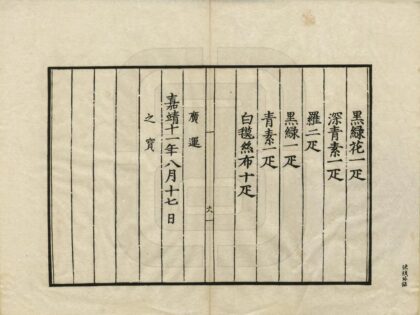 黑綠花一疋
深青素一疋
羅二疋
黑綠一疋
青素一疋
白㲲絲布十疋
廣運
嘉靖十一年八月十七日
之寳